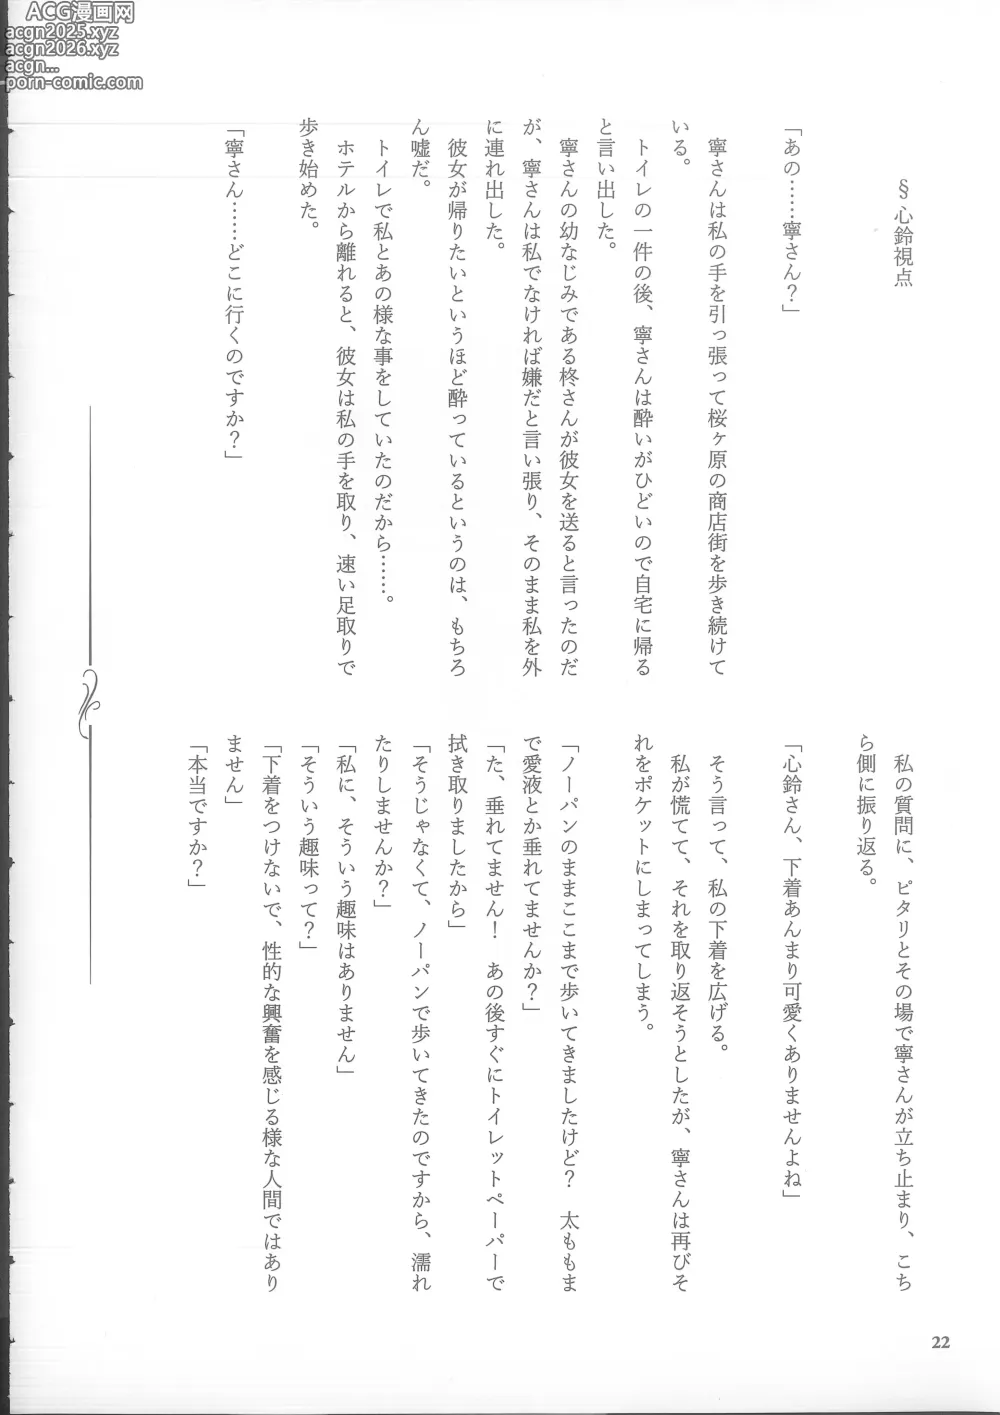 ACG漫画网
acgn2025.xyz
acgn2026.xyz
acgn...
porn-comic.com
§心鈴視点
「あの……寧さん？」
寧さんは私の手を引っ張って桜ヶ原の商店街を歩き続けて
いる。
トイレの一件の後、寧さんは酔いがひどいので自宅に帰る
と言い出した。
寧さんの幼なじみである柊さんが彼女を送ると言ったのだ
が、寧さんは私でなければ嫌だと言い張り、そのまま私を外
に連れ出した。
彼女が帰りたいというほど酔っているというのは、もちろ
ん嘘だ。
トイレで私とあの様な事をしていたのだから……。
ホテルから離れると、彼女は私の手を取り、速い足取りで
歩き始めた。
「寧さん……どこに行くのですか？」
私の質問に、ピタリとその場で寧さんが立ち止まり、こち
ら側に振り返る。
「心鈴さん、下着あんまり可愛くありませんよね」
そう言って、私の下着を広げる。
私が慌てて、それを取り返そうとしたが、寧さんは再びそ
れをポケットにしまってしまう。
「ノーパンのままここまで歩いてきましたけど？　太ももま
で愛液とか垂れてませんか？」
「た、垂れてません！　あの後すぐにトイレットペーパーで
拭き取りましたから」
「そうじゃなくて、ノーパンで歩いてきたのですから、濡れ
たりしませんか？」
「私に、そういう趣味はありません」
「そういう趣味って？」
「下着をつけないで、性的な興奮を感じる様な人間ではあり
ません」
「本当ですか？」
22